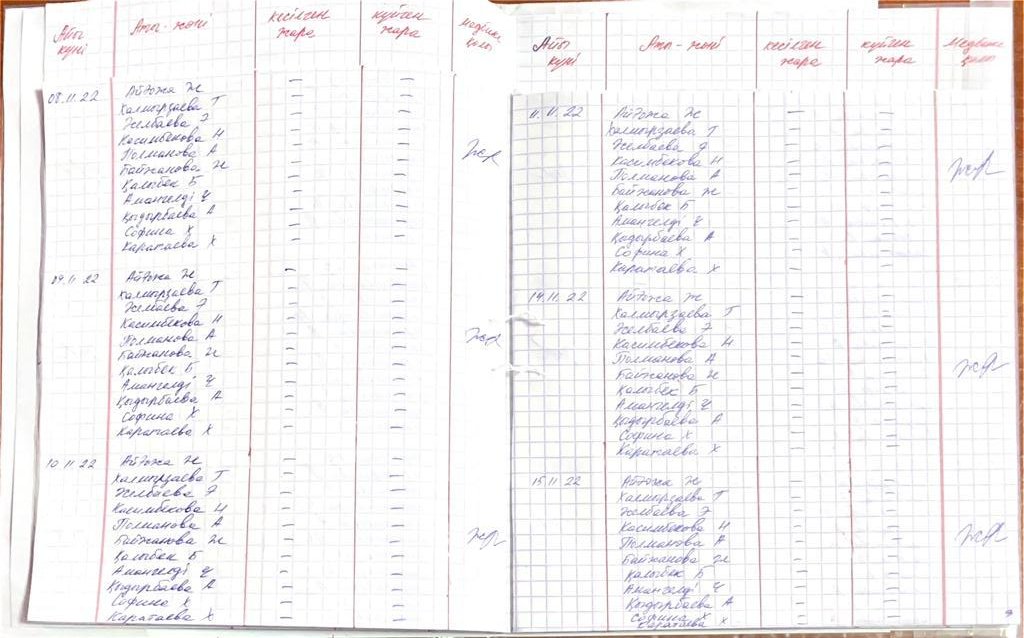 Айы Аты-жөні кесілген күйген медбике
күні жара жара қолы
08.11.22 Айқожа Ж — —
Халмырзаева Т — —
Желбаева Э — —
Касимбекова Н — —
Полманова А — —
Байжанова Ж — —
Қалыбек Б — —
Амангелді Ұ — —
Қыдырбаева А — —
Софина Х — —
Каратаева Х — —
09.11.22 Айқожа Ж — —
Халмырзаева Т — —
Желбаева Э — —
Касимбекова Н — —
Полманова А — —
Байжанова Ж — —
Қалыбек Б — —
Амангелді Ұ — —
Қыдырбаева А — —
Софина Х — —
Каратаева Х — —
10.11.22 Айқожа Ж — —
Халмырзаева Т — —
Желбаева Э — —
Касимбекова Н — —
Полманова А — —
Байжанова Ж — —
Қалыбек Б — —
Амангелді Ұ — —
Қыдырбаева А — —
Софина Х — —
Каратаева Х — —
Айы Аты-жөні кесілген күйген медбике
күні жара жара қолы
11.11.22 Айқожа Ж — —
Халмырзаева Т — —
Желбаева Э — —
Касимбекова Н — —
Полманова А — —
Байжанова Ж — —
Қалыбек Б — —
Амангелді Ұ — —
Қыдырбаева А — —
Софина Х — —
Каратаева Х — —
14.11.22 Айқожа Ж — —
Халмырзаева Т — —
Желбаева Э — —
Касимбекова Н — —
Полманова А — —
Байжанова Ж — —
Қалыбек Б — —
Амангелді Ұ — —
Қыдырбаева А — —
Софина Х — —
Каратаева Х — —
15.11.22 Айқожа Ж — —
Халмырзаева Т — —
Желбаева Э — —
Касимбекова Н — —
Полманова А — —
Байжанова Ж — —
Қалыбек Б — —
Амангелді Ұ — —
Қыдырбаева А — —
Софина Х — —
Каратаева Х — —
9